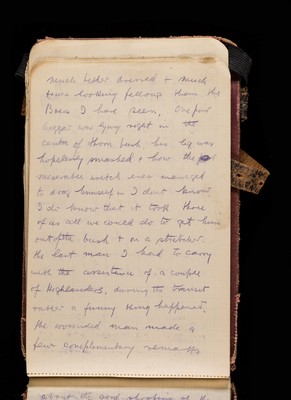 much better dressed & much
town looking fellows than the
Boers I have seen, One poor
beggar was lying right in the
centre of thorn bush his leg was
hopelessly smashed & how the poor
miserable wretch ever managed
to drag himself in I dont know
I do know that it took three
of us all we could do to get him
out of the bush & on a stretcher.
the last man I had to carry
with the assistance of a couple
of Highlanders, during the transit
rather a funny thing happened.
the wounded man made a
few complimentary remarks
about the good shooting of the